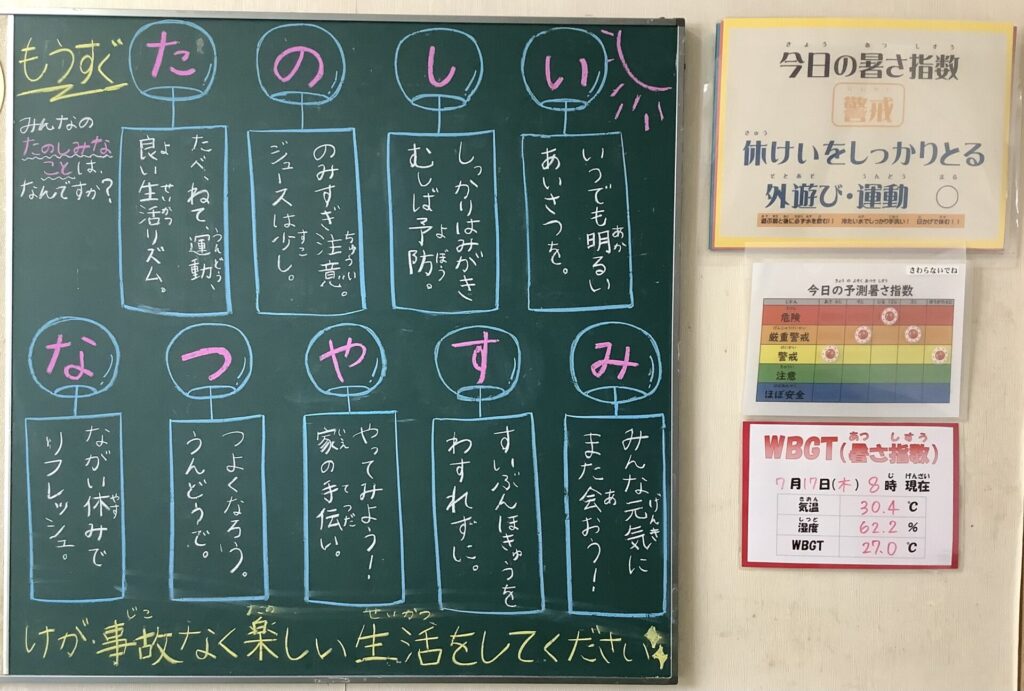 もうすぐ
た
の
し
い
みんなの
たのしみな
ことは、
なんですか？
たべ、ねて、運動、
良い生活リズム。
のみすぎ注意。
ジュースは少し。
しっかりはみがき
むしば予防。
いつでも明るい
あいさつを。
な
つ
や
す
み
ながい休みで
リフレッシュ。
つよくなろう。
うんどうで。
やってみよう！
家の手伝い。
すいぶんほきゅうを
わすれずに。
みんな元気に
また会おう！
けが・事故なく楽しい生活をしてください
今日の暑さ指数
警戒
休けいをしっかりとる
外遊び・運動 ○
さわらないでね
今日の予測暑さ指数
危険
厳重警戒
警戒
注意
ほぼ安全
WBGT(暑さ指数)
7月17日(木) 8時 現在
気温 30.4 ℃
湿度 62.2 %
WBGT 27.0 ℃